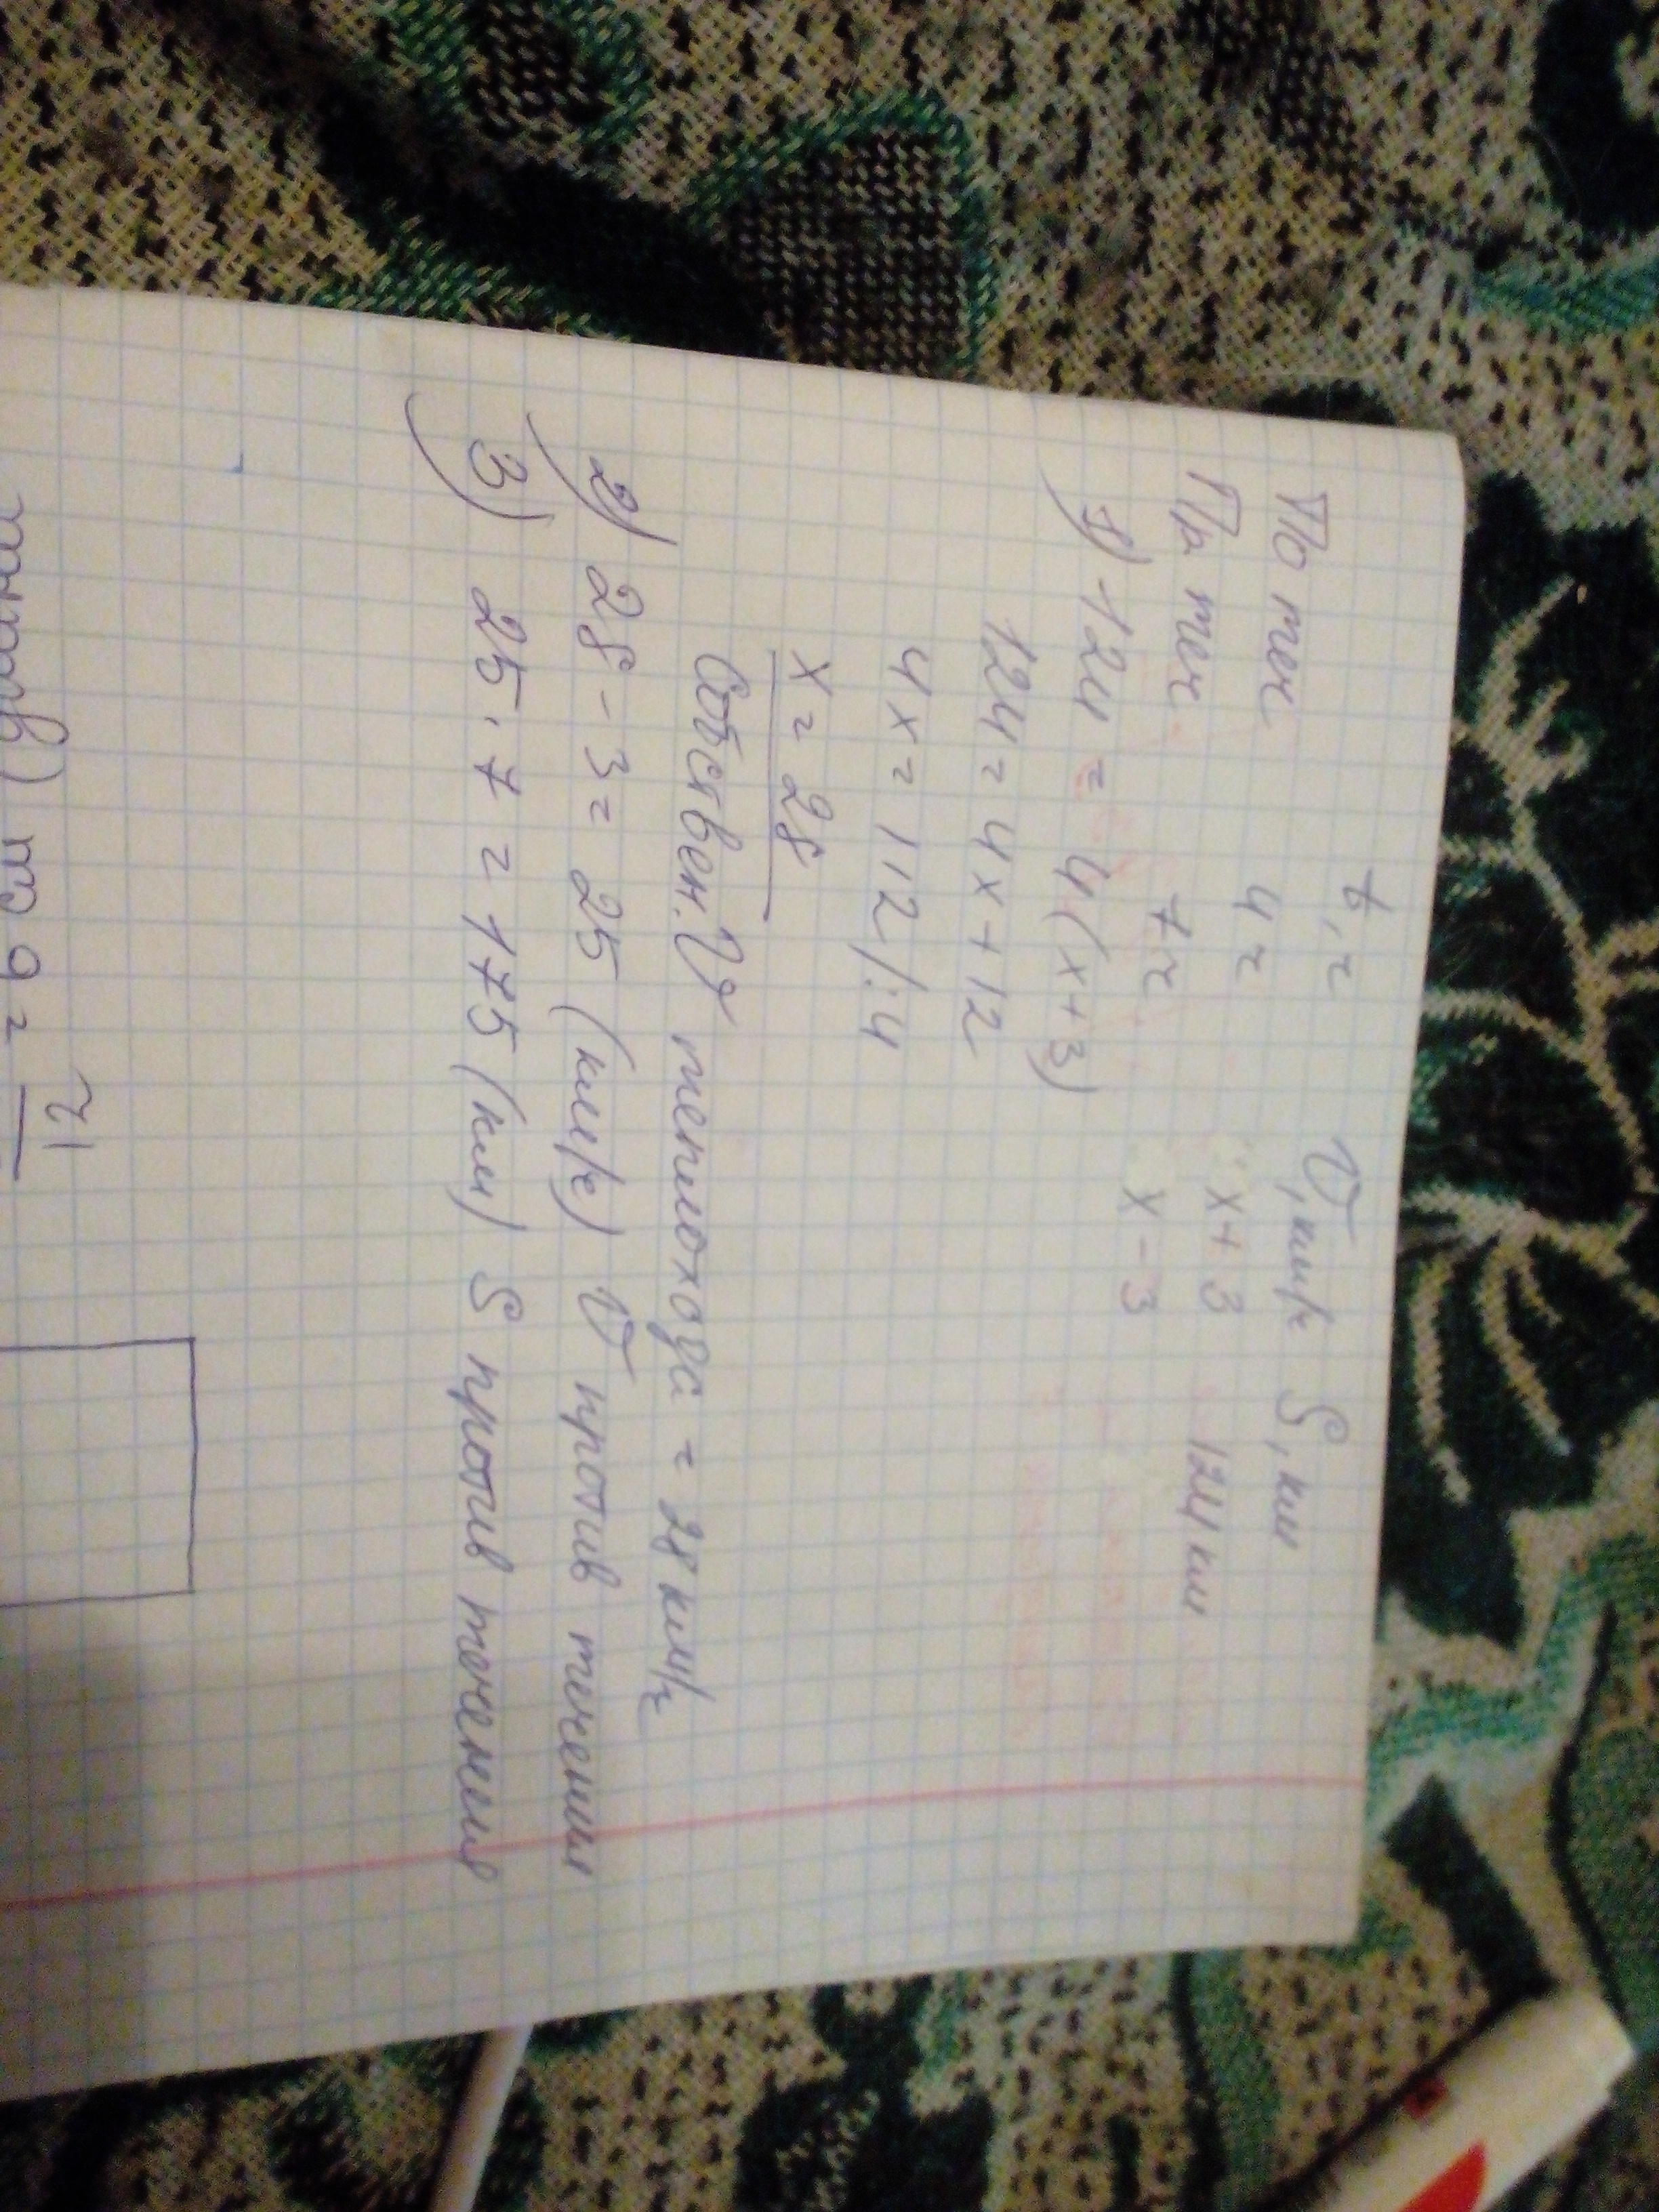 t, ч V, км/ч S, км
По теч 4 ч x + 3 124 км
Пр теч 7 ч x - 3
1) 124 = 4 (x + 3)
124 = 4x + 12
4x = 112 /:4
x = 28
Собствен. V теплохода = 28 км/ч
2) 28 - 3 = 25 (км/ч) V против течения
3) 25 . 7 = 175 (км) S против течения
12
= 6 см (